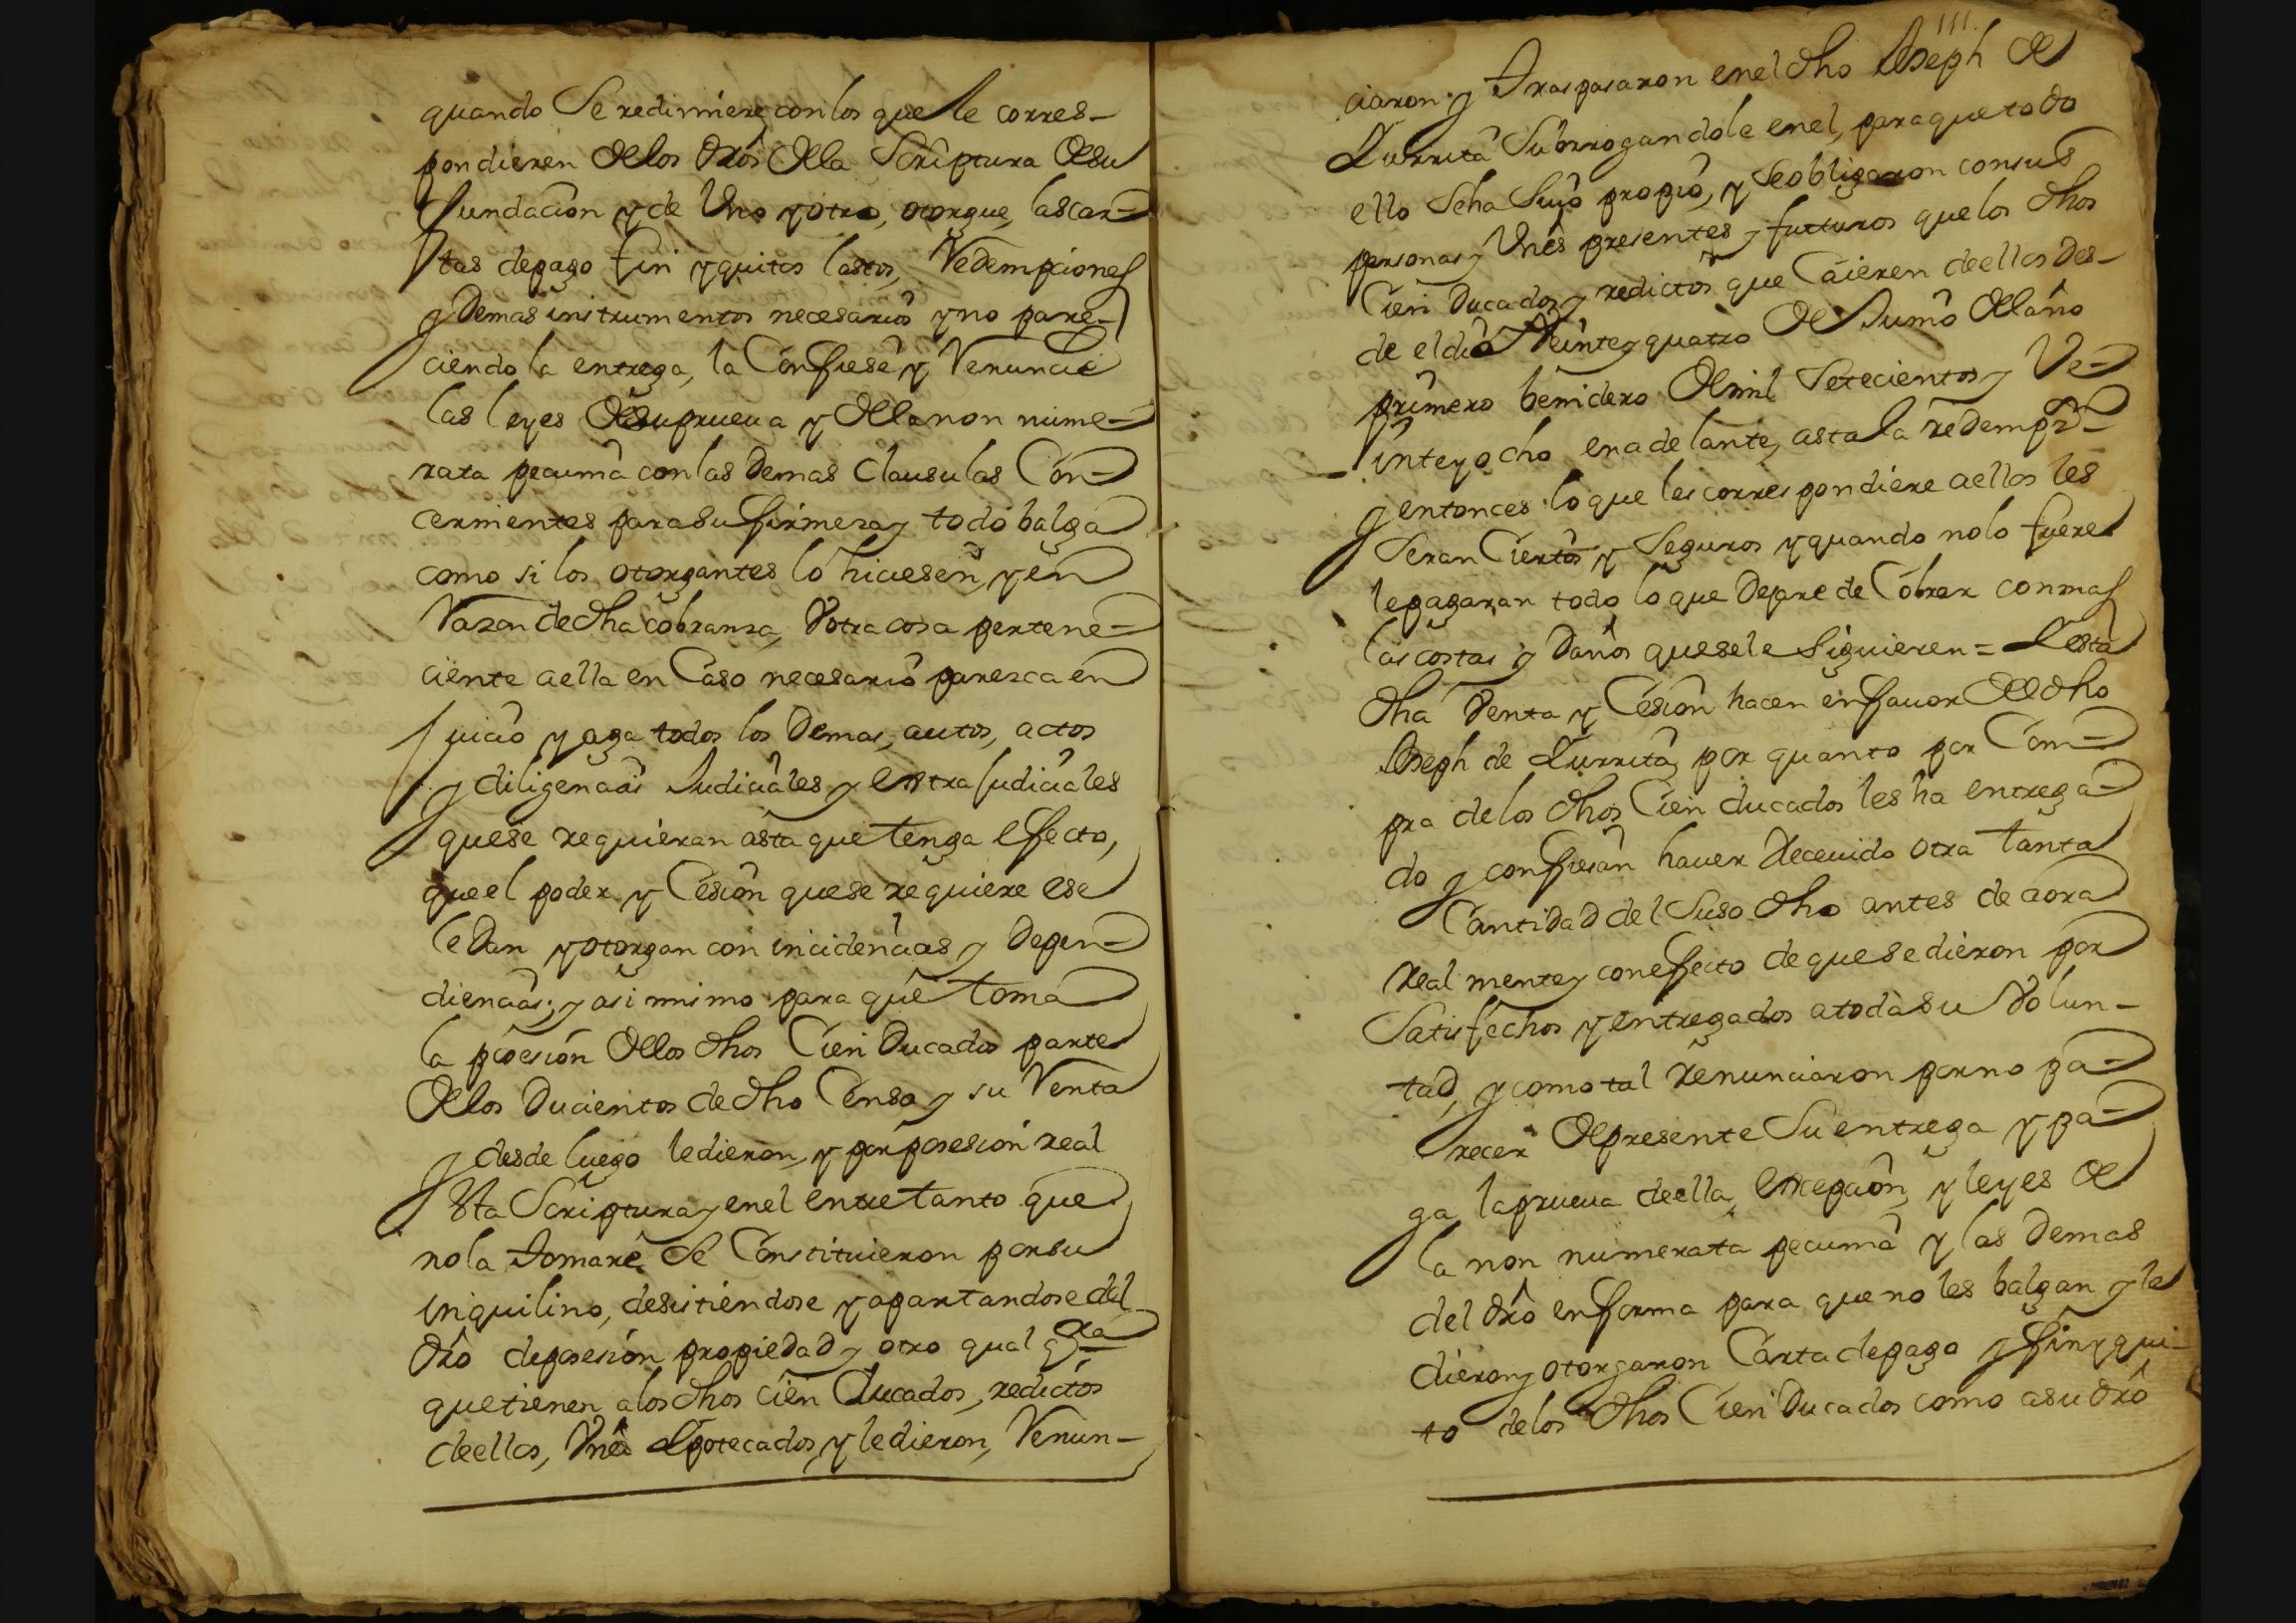 quando Se redimiere con los que le corres-
pondieren de los dros de la Scriptura de su
fundacion y de Uno y otro, otorgue, las car-
tas de pago fin y quitos lastos, Redempciones
y Demas instrumentos necesarios y no pare-
ciendo la entrega, la Confiese y Renuncie
las leyes de su prueua y de la non nume-
rata pecunia con las Demas Clausulas Con-
cernientes para su firmeza y todo balga
como si los otorgantes lo hiciesen, y en
Razon de dha cobranza, U otra cosa pertene-
ciente a ella en Caso necesario paresca en
Juicio y aga todos los Demas, autos, actos
y diligencias Judiciales y extra Judiciales
que se requieran asta que tenga efecto,
que el poder y Cesion que se requiere ese
le Dan y otorgan con incidencias y Depen-
diencias; y asi mismo para que toma
la posesion de los dhos Cien Ducados parte
de los Ducientos de dho Censo y su Venta
y desde luego le dieron, y por posesion real
esta Scriptura y en el entretanto que
no la tomare Se Constituieron por su
inquilino, desistiendose y apartandose del
dro de posesion propiedad y otro qual qra
que tienen a los dhos cien Ducados, redictos
de ellos, Vnes Ypotecados, y le dieron, Renun-
111.
ciaron y traspasaron en el dho Joseph de
Zurrita Subrrogandole en el, para que todo
ello Seha Suio propio, y Se obligaron con sus
personas y Vnes presentes y futturos que los dhos
Cien Ducados y redictos que Caieren de ellos Des-
de el dia Veinte y quatro de Junio del año
primero benidero de mil Setecientos y Ve-
inte y ocho en adelante, asta la redempon
y entonces lo que les correspondiere a ellos les
Seran Ciertos y Seguros y quando no lo fuere
le pagaran todo lo que Dejare de Cobrar con mas
las costas y Daños que se le Siguieren = Y esta
dha Venta y Cesion hacen en fauor de dho
Joseph de Zurrita, por quanto por Com-
pra de los dhos Cien ducados les ha entrega-
do y confiesan hauer Receuido otra tanta
Cantidad del Suso dho antes de aora
Real mente y con efecto de que se dieron por
Satisfechos y entregados a toda su Volun-
tad, y como tal renunciaron por no pa-
recer de presente Su entrega y pa-
ga la prueua de ella, excepcion, y leyes de
la non numerata pecunia y las Demas
del dro en forma para que no les balgan y le
dieron y otorgaron Carta de pago y fin y qui-
to de los dhos Cien Ducados como a su dro